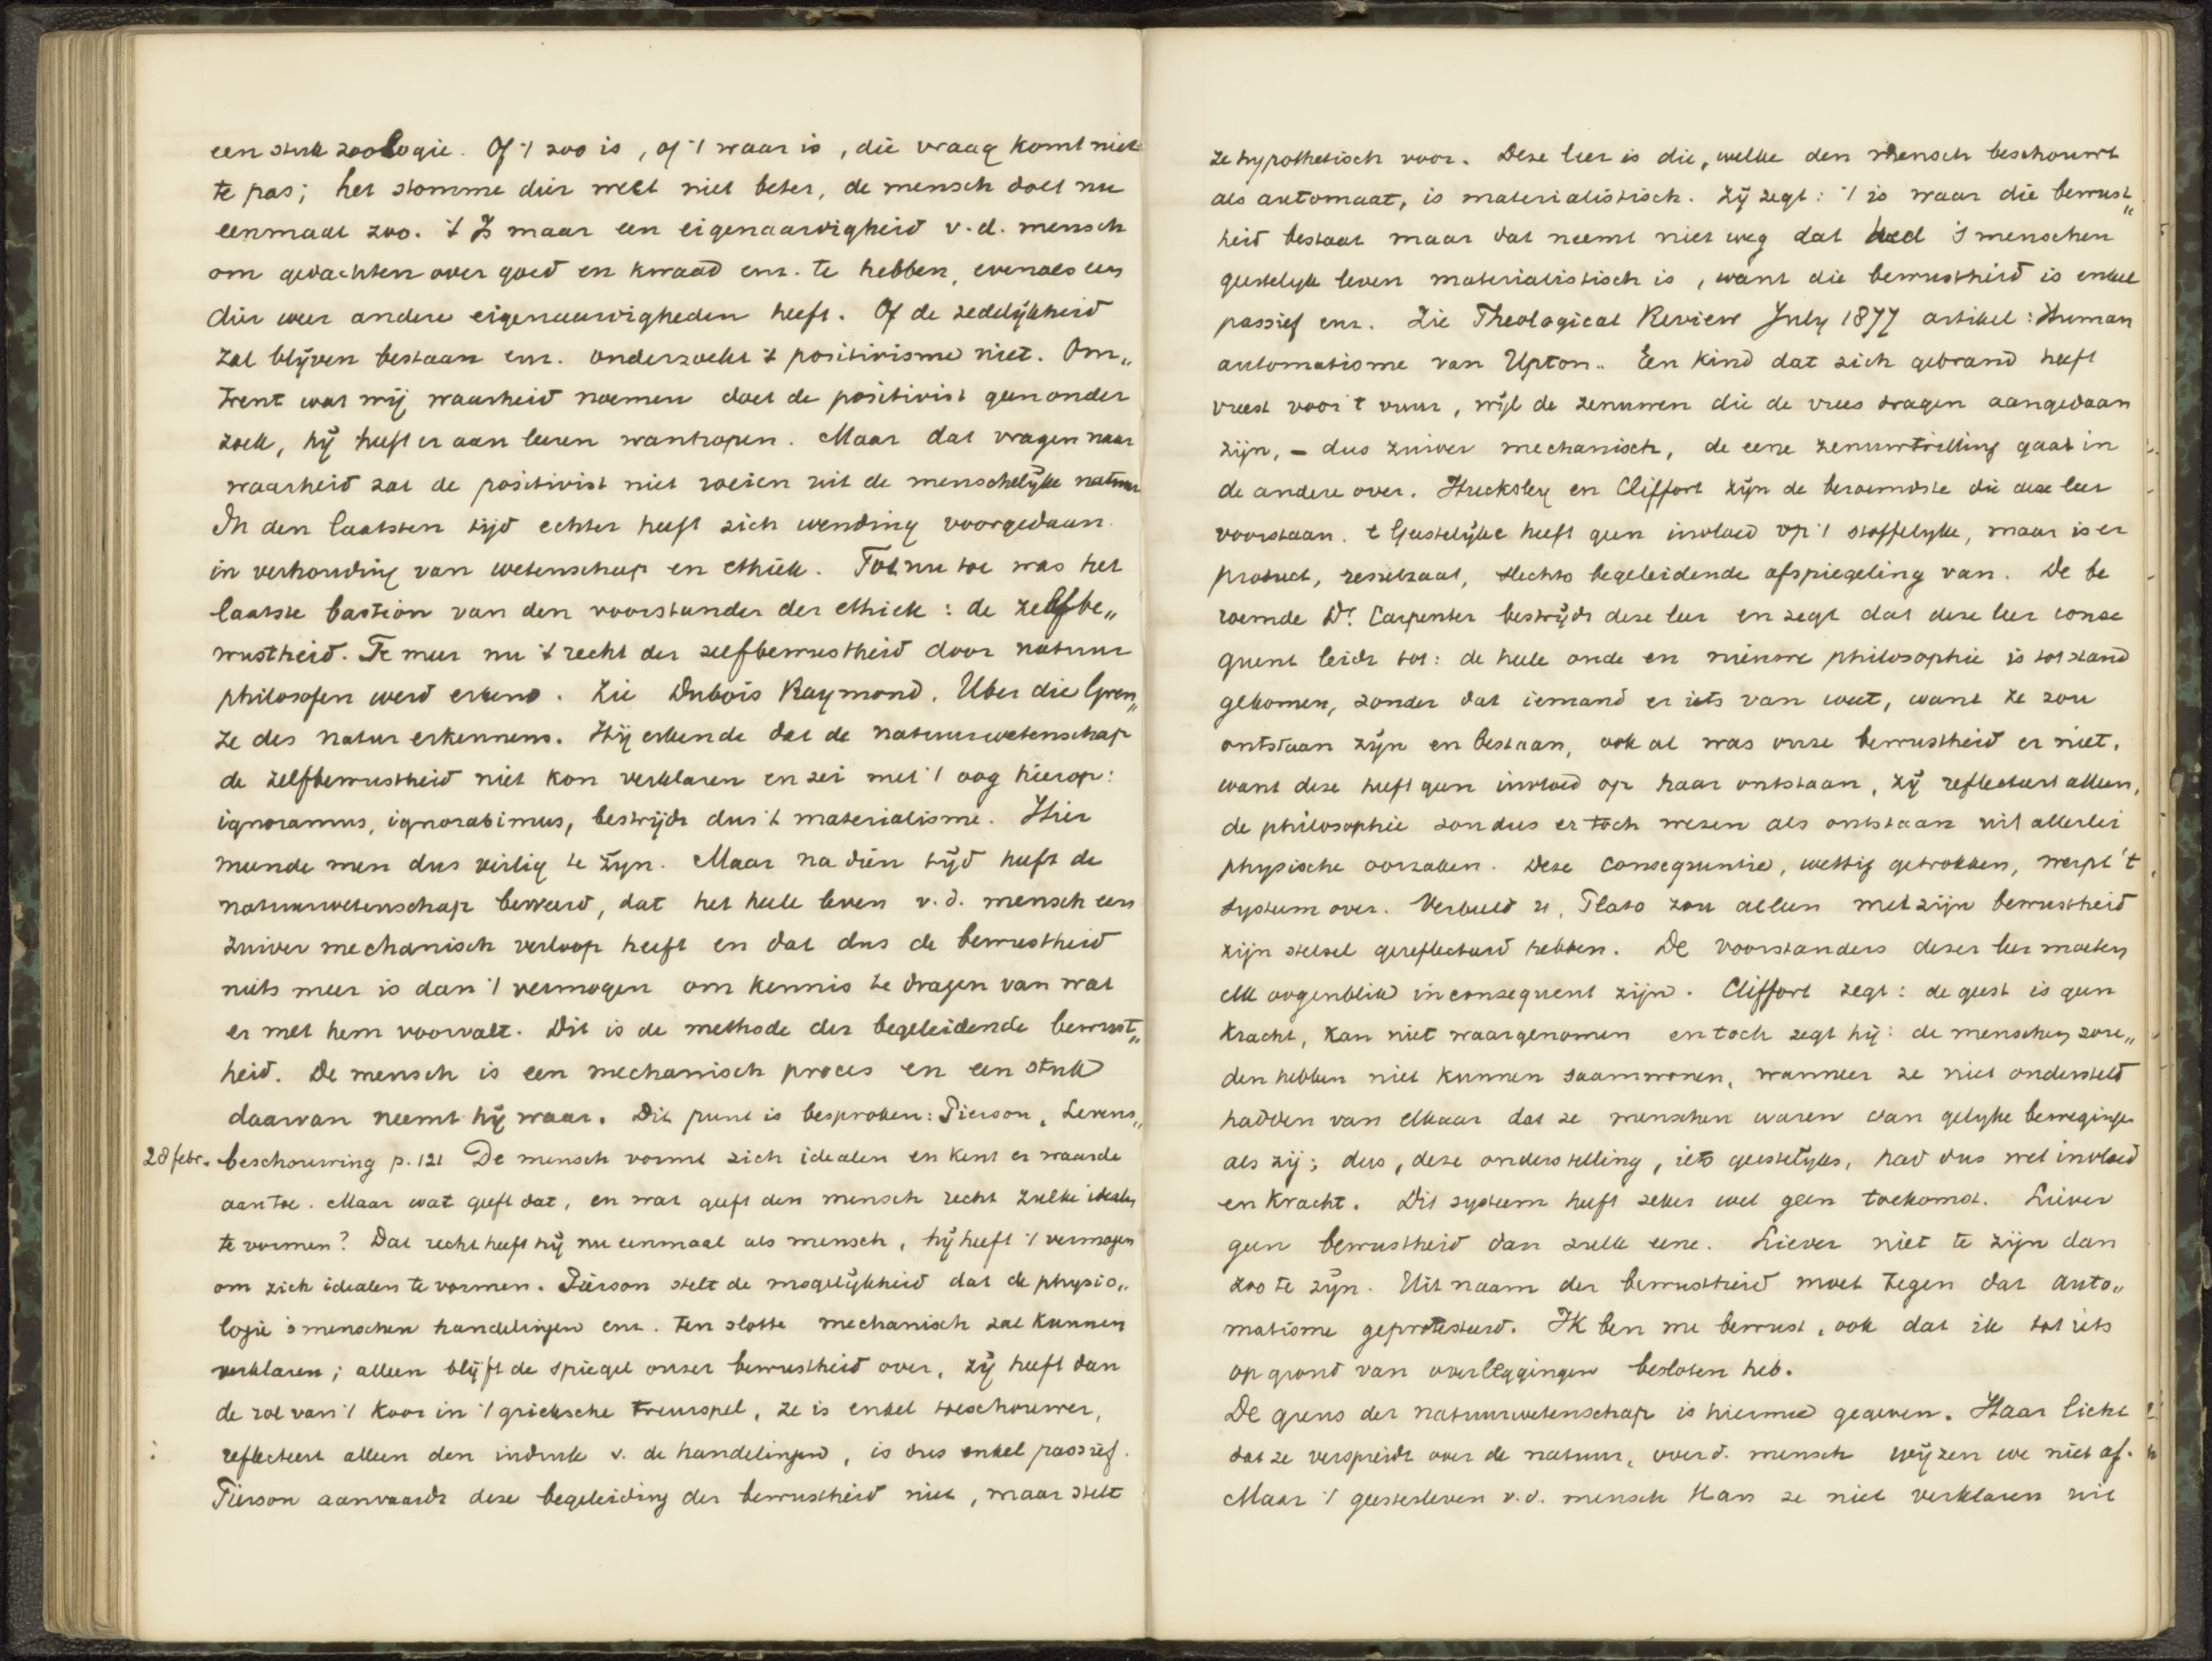 een stuk zoologie. Of 't zoo is, of 't waar is, die vraag komt niet
te pas; het stomme dier weet niet beter, de mensch doet nu
eenmaal zoo. 't Is maar een eigenaardigheid v.d. mensch
om gedachten over goed en kwaad enz. te hebben, evenals een
dier weer andere eigenaardigheden heeft. Of de zedelijkheid
zal blijven bestaan enz. onderzoekt 't positivisme niet. Om„
trent wat wij waarheid noemen doet de positivist geen onder
zoek, hij heeft er aan leeren wanhopen. Maar dat vragen naar
waarheid zal de positivist niet roeien uit de menschelijke natuur
In den laatsten tijd echter heeft zich wending voorgedaan
in verhouding van wetenschap en ethiek. Tot nu toe was het
laatste bastion van den voorstander der ethiek: de zelfbe„
wustheid. Te meer nu 't recht der zelfbewustheid door natuur
philosofen werd erkend. Zie Dubois Raymond. Uber die Gren„
ze des natur erkennens. Hij erkende dat de natuurwetenschap
de zelfbewustheid niet kon verklaren en zei met 't oog hierop:
ignoramus, ignorabimus, bestrijdt dus 't materialisme. Hier
meende men dus veilig te zijn. Maar na dien tijd heeft de
natuurwetenschap beweerd, dat het heele leven v.d. mensch een
zuiver mechanisch verloop heeft en dat dus de bewustheid
niets meer is dan 't vermogen om kennis te dragen van wat
er met hem voorvalt. Dit is de methode der begeleidende bewust„
heid. De mensch is een mechanisch proces en een stuk
daarvan neemt hij waar. Dit punt is besproken: Pierson, Levens„
28 febr. beschouwing p. 121 De mensch vormt zich idealen en kent er waarde
aan toe. Maar wat geeft dat, en wat geeft den mensch recht zulke idealen
te vormen? Dat recht heeft hij nu eenmaal als mensch, hij heeft 't vermogen
om zich idealen te vormen. Pierson stelt de mogelijkheid dat de physio„
logie 's menschen handelingen enz. ten slotte mechanisch zal kunnen
verklaren; alleen blijft de spiegel onzer bewustheid over, zij heeft dan
de rol van 't koor in 't grieksche treurspel, ze is enkel toeschouwer,
reflecteert alleen den indruk v. de handelingen, is dus enkel passief.
Pierson aanvaardt deze begeleiding der bewustheid niet, maar stelt
ze hypothetisch voor. Deze leer is die, welke den mensch beschouwt
als automaat, is materialistisch. Zij zegt: 't is waar die bewust„
heid bestaat maar dat neemt niet weg dat heel 's menschen
geestelijk leven materialistisch is, want die bewustheid is enkel
passief enz. Zie Theological Review July 1877 artikel: Human
automatisme van Upton. Een kind dat zich gebrand heeft
vreest voor 't vuur, wijl de zenuwen die de vrees dragen aangedaan
zijn, – dus zuiver mechanisch, de eene zenuwtrilling gaat in
de andere over. Hucksley en Cliffort zijn de beroemdste die deze leer
voorstaan. 't Geestelijke heeft geen invloed op 't stoffelijke, maar is er
product, resultaat, slechts begeleidende afspiegeling van. De be
roemde Dr. Carpenter bestrijdt deze leer en zegt dat deze leer conse
quent leidt tot: de heele oude en nieuwe philosophie is tot stand
gekomen, zonder dat iemand er iets van weet, want ze zou
ontstaan zijn en bestaan, ook al was onze bewustheid er niet,
want deze heeft geen invloed op haar ontstaan, zij reflecteert alleen,
de philosophie zou dus er toch wezen als ontstaan uit allerlei
physische oorzaken. Deze consequentie, wettig getrokken, werpt 't
systeem over. Verbeeld u, Plato zou alleen met zijn bewustheid
zijn stelsel gereflecteerd hebben. De voorstanders dezer leer moeten
elk oogenblik inconsequent zijn. Cliffort zegt: de geest is geen
kracht, kan niet waargenomen en toch zegt hij: de menschen zou„
den hebben niet kunnen saamwonen, wanneer ze niet ondersteld
hadden van elkaar dat ze menschen waren van gelijke bewegingen
als zij; dus, deze onderstelling, iets geestelijks, had dus wel invloed
en kracht. Dit systeem heeft zeker wel geen toekomst. Liever
geen bewustheid dan zulk eene. Liever niet te zijn dan
zoo te zijn. Uit naam der bewustheid moet tegen dat auto„
matisme geprotesteerd. Ik ben me bewust, ook dat ik tot iets
op grond van overleggingen besloten heb.
De grens der natuurwetenschap is hiermee gegeven. Haar licht
dat ze verspreidt over de natuur, over d. mensch wijzen we niet af.
Maar 't geestesleven v.d. mensch kan ze niet verklaren uit